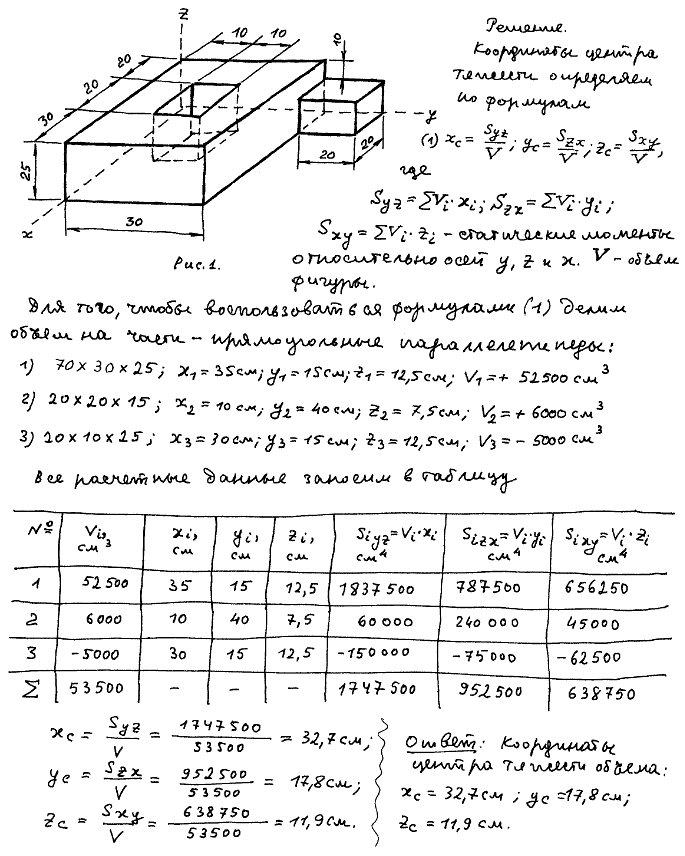 z
10 10
10
20
20
30
25
30
20
20
x
y
Рис.1.
Решение.
Координаты центра
тяжести определяем
по формулам
(1) xc = Syz/V ; yc = Szx/V ; zc = Sxy/V ,
где
Syz = ΣVi·xi; Szx = ΣVi·yi;
Sxy = ΣVi·zi – статические моменты
относительно осей y, z и x. V – объем
фигуры.
Для того, чтобы воспользоваться формулами (1) делим
объем на части – прямоугольные параллелепипеды:
1) 70×30×25; x1=35см; y1=15см; z1=12,5см; V1=+ 52500 см³
2) 20×20×15; x2=10см; y2=40см; z2=7,5см; V2=+ 6000 см³
3) 20×10×25; x3=30см; y3=15см; z3=12,5см; V3=– 5000 см³
Все расчетные данные заносим в таблицу
№ Vi, см³ xi, см yi, см zi, см Siyz=Vi·xi см⁴ Sizx=Vi·yi см⁴ Sixy=Vi·zi см⁴
1 52500 35 15 12,5 1837500 787500 656250
2 6000 10 40 7,5 60000 240000 45000
3 -5000 30 15 12,5 -150000 -75000 -62500
Σ 53500 – – – 1747500 952500 638750
xc = Syz/V = 1747500/53500 = 32,7см;
yc = Szx/V = 952500/53500 = 17,8см;
zc = Sxy/V = 638750/53500 = 11,9см.
Ответ: Координаты
центра тяжести объема:
xc = 32,7см ; yc = 17,8см;
zc = 11,9 см.